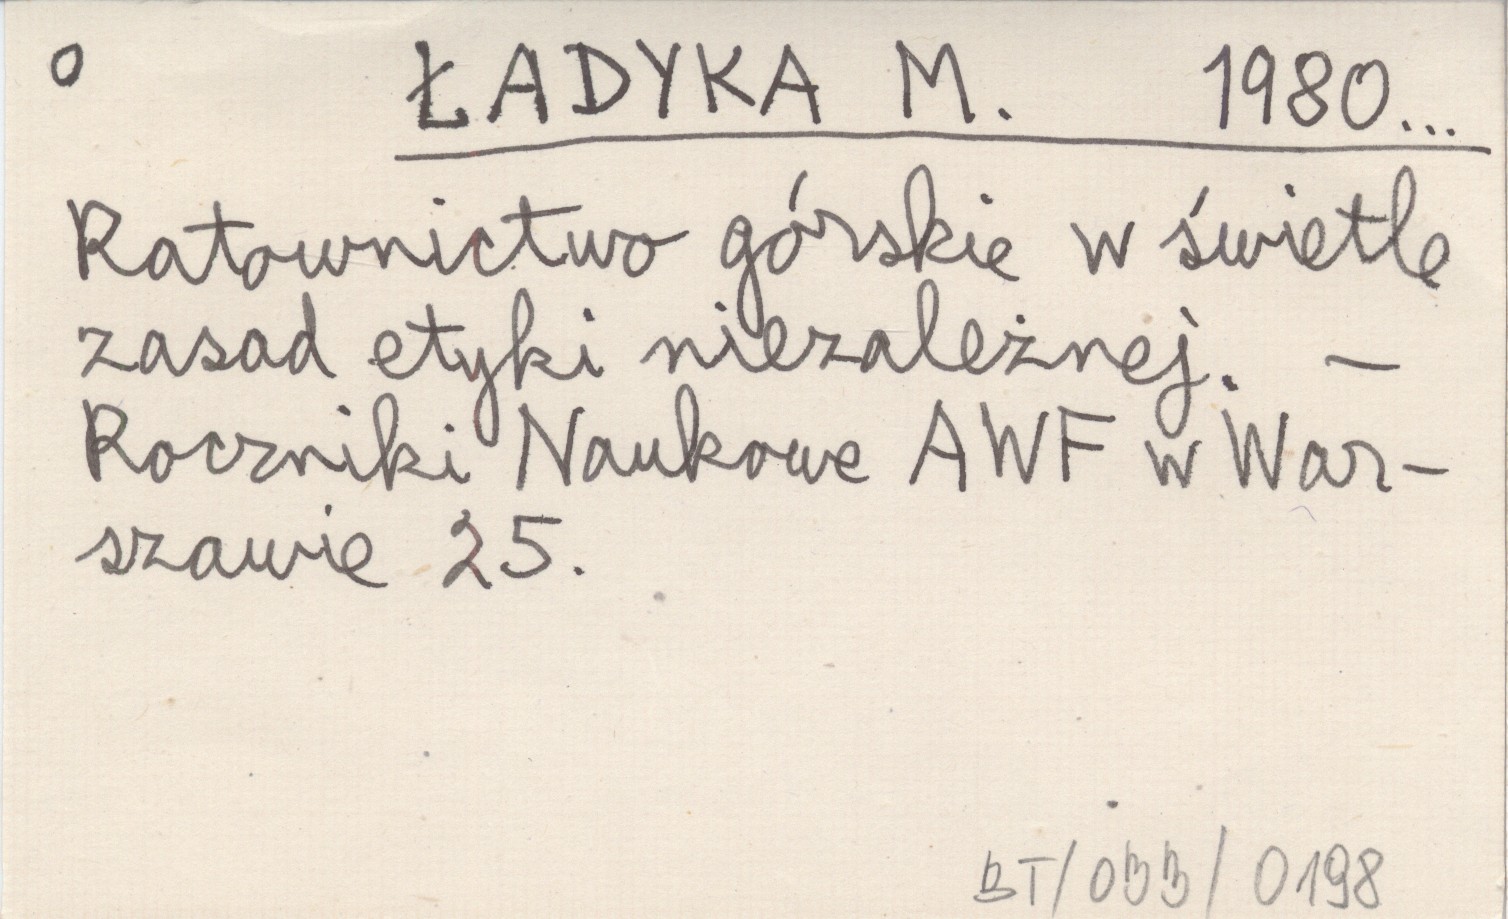 o ŁADYKA M. 1980...
Ratownictwo górskie w świetle
zasad etyki niezależnej. —
Roczniki Naukowe AWF w War-
szawie 25.
BT/033/0198